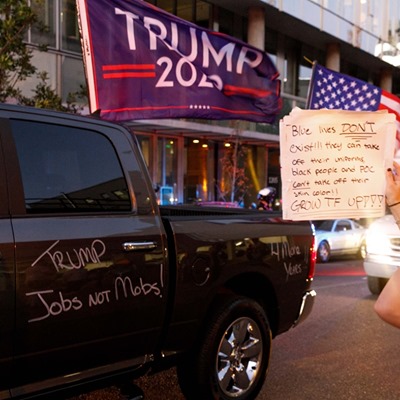 TRUMP
2020
Blue lives DON'T
exist!!! they can take
off their uniform,
black people and POC
can't take off their
skin color!!
GROW TF UP!!!
TRUMP
Jobs not Mobs!
4 More
Years